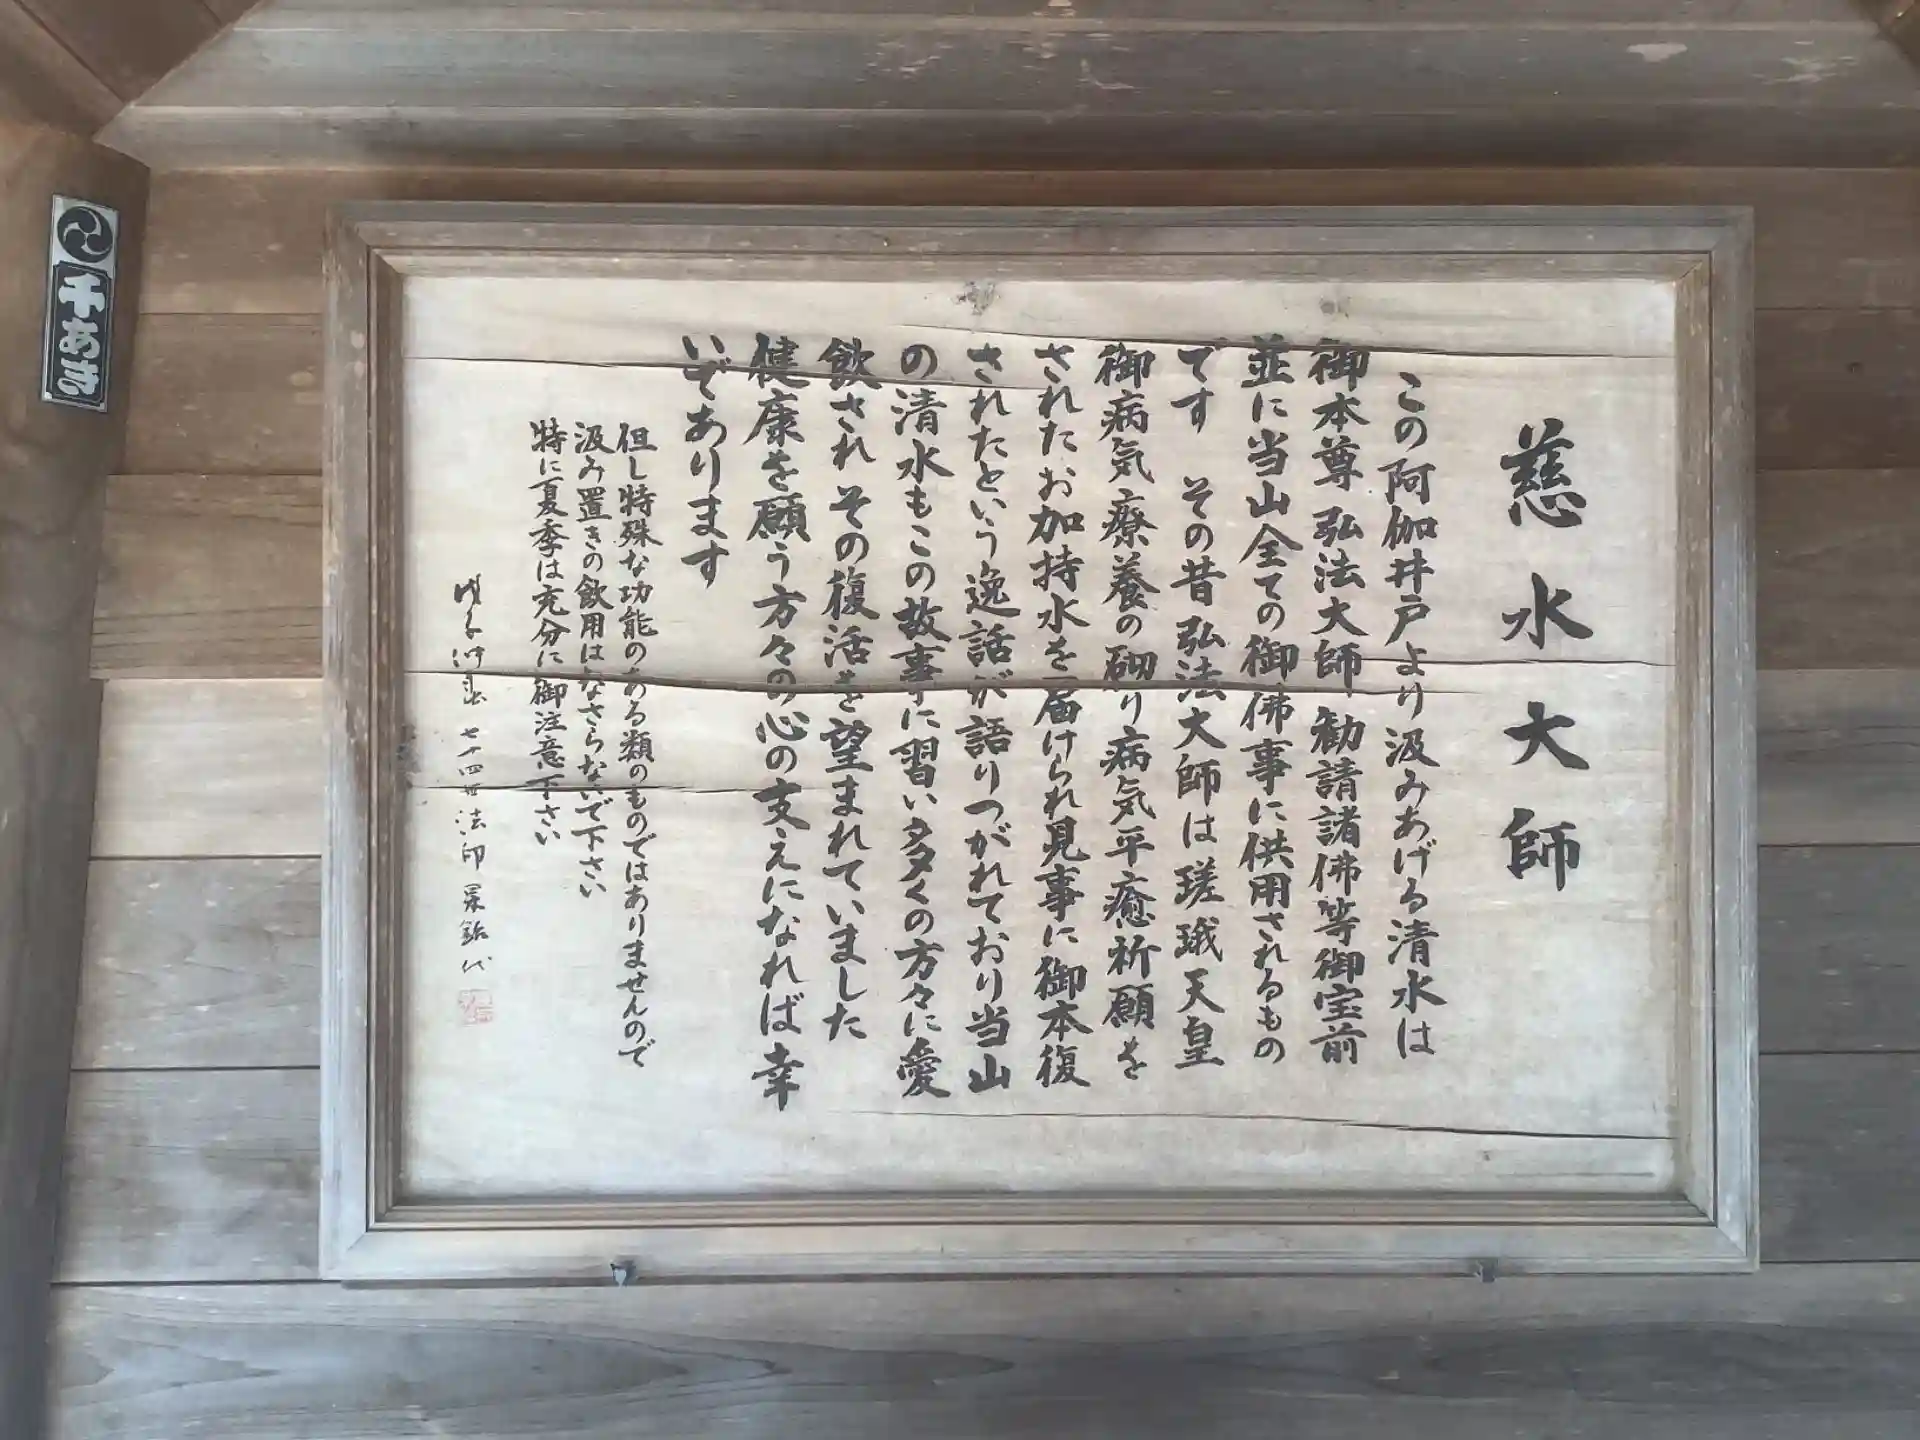 慈水大師
この阿伽井戸より汲みあげる清水は
御本尊弘法大師勧請諸佛等御宝前
並に当山全ての御佛事に供用されるもの
です　その昔弘法大師は瑳珴天皇
御病気療養の砌り病気平癒祈願を
されたお加持水を届けられ見事に御本復
されたという逸話が語りつがれており当山
の清水もこの故事に習い多くの方々に愛
飲され その復活を望まれていました
健康を願う方々の心の支えになれば幸
いであります
但し特殊な功能のある類のものではありませんので
汲み置きの飲用はなさらないで下さい
特に夏季は充分に御注意下さい
七十四世法印
千あき